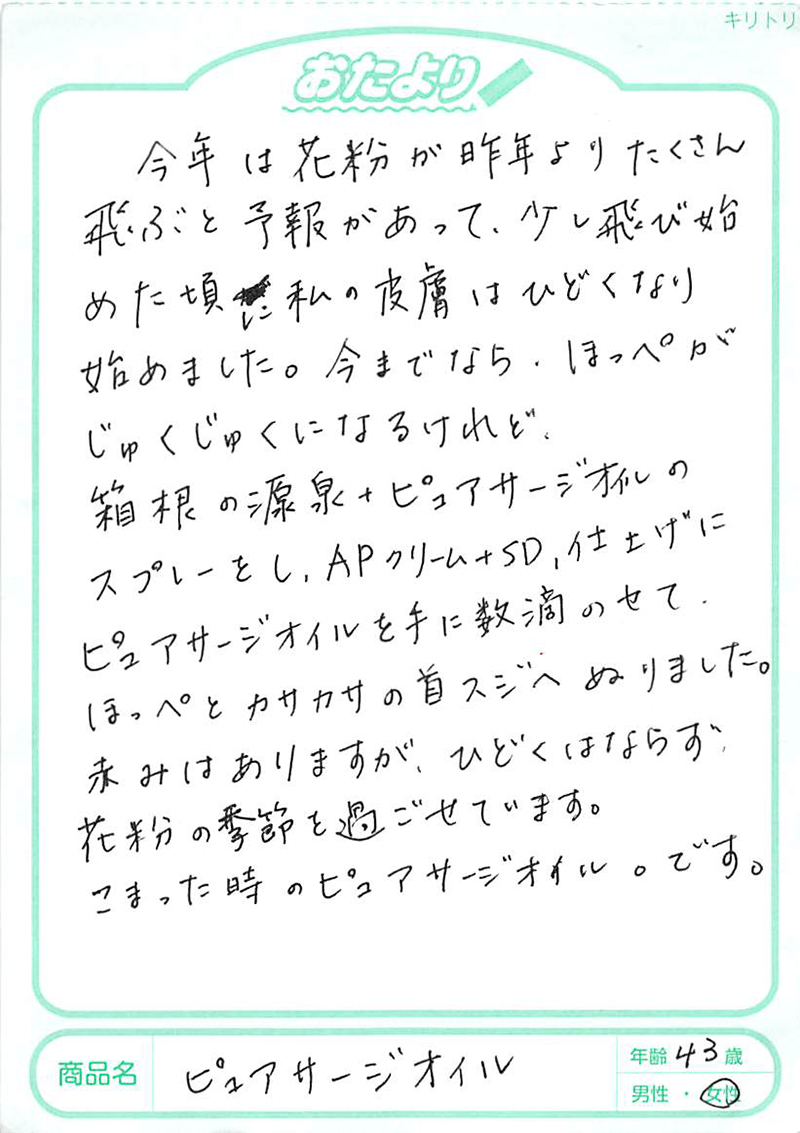 キリトリ
おたより
今年は花粉が昨年よりたくさん
飛ぶと予報があって、少し飛び始
めた頃に私の皮膚はひどくなり
始めました。今までなら、ほっぺが
じゅくじゅくになるけれど、
箱根の源泉+ピュアサージオイルの
スプレーをし、APクリーム+SD、仕上げに
ピュアサージオイルを手に数滴のせて、
ほっぺとカサカサの首スジへぬりました。
赤みはありますが、ひどくはならず、
花粉の季節を過ごせています。
こまった時のピュアサージオイル。です。
商品名 ピュアサージオイル
年齢 43歳
男性・女性